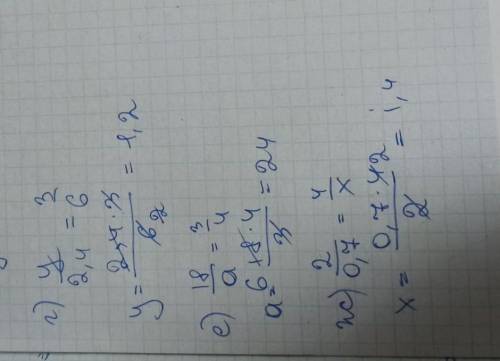 г) y/2,4 = 3/6
y = 2,4·3/6 2 = 1,2
е) 18/a = 3/4
a = 6 18·4/3 = 24
ж) 2/0,7 = 4/x
x = 0,7·4 2/2 = 1,4